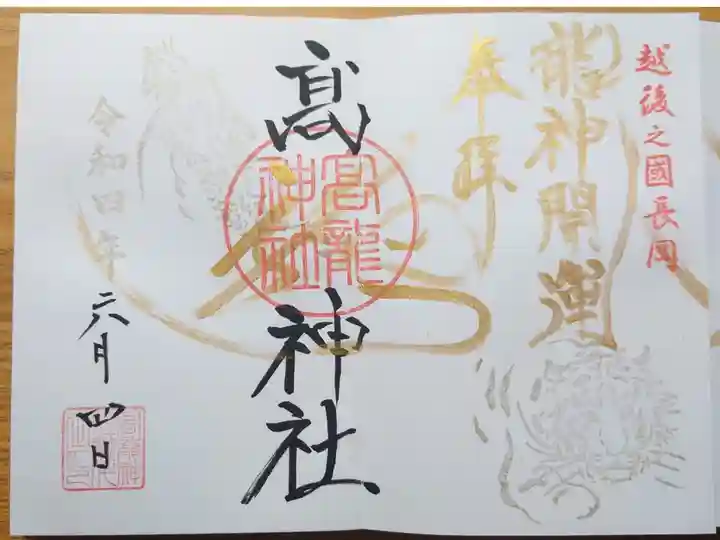 越後之國長岡
龍神開運
奉拝
髙龍神社
髙龍
神社
令和四年
六月四日